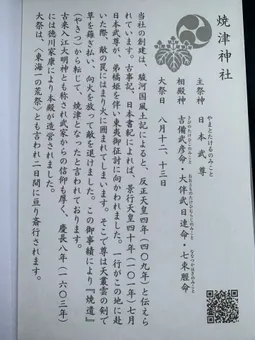 焼津神社
主祭神　日本武尊
やまとたけるのみこと
相殿神　吉備武彦命・大伴武日連命・七束脛命
大祭日　八月十二、十三日
当社の創建は、駿河国風土記によると、反正天皇四年（四〇九年）と伝え
れています。古事記、日本書紀によれば、景行天皇四十年（一〇一年）七月
日本武尊が、弟橘姫を伴い東夷御征討に向かわれました。一行がこの地に赴
いた際、敵の罠にはまり火に囲まれてしまいます。そこで尊は天叢雲の剣で
草を薙ぎ払い、向火を放って敵を退けました。この御事蹟により『焼遣』
（やきつ）から転じて、焼津となったと言われております。
古来入江大明神とも称され武家からの信仰も厚く、慶長八年（一六〇三年）
には徳川家康により本殿が造営されました。
大祭は、〈東海一の荒祭〉とも言われ二日間に亘り斎行されます。